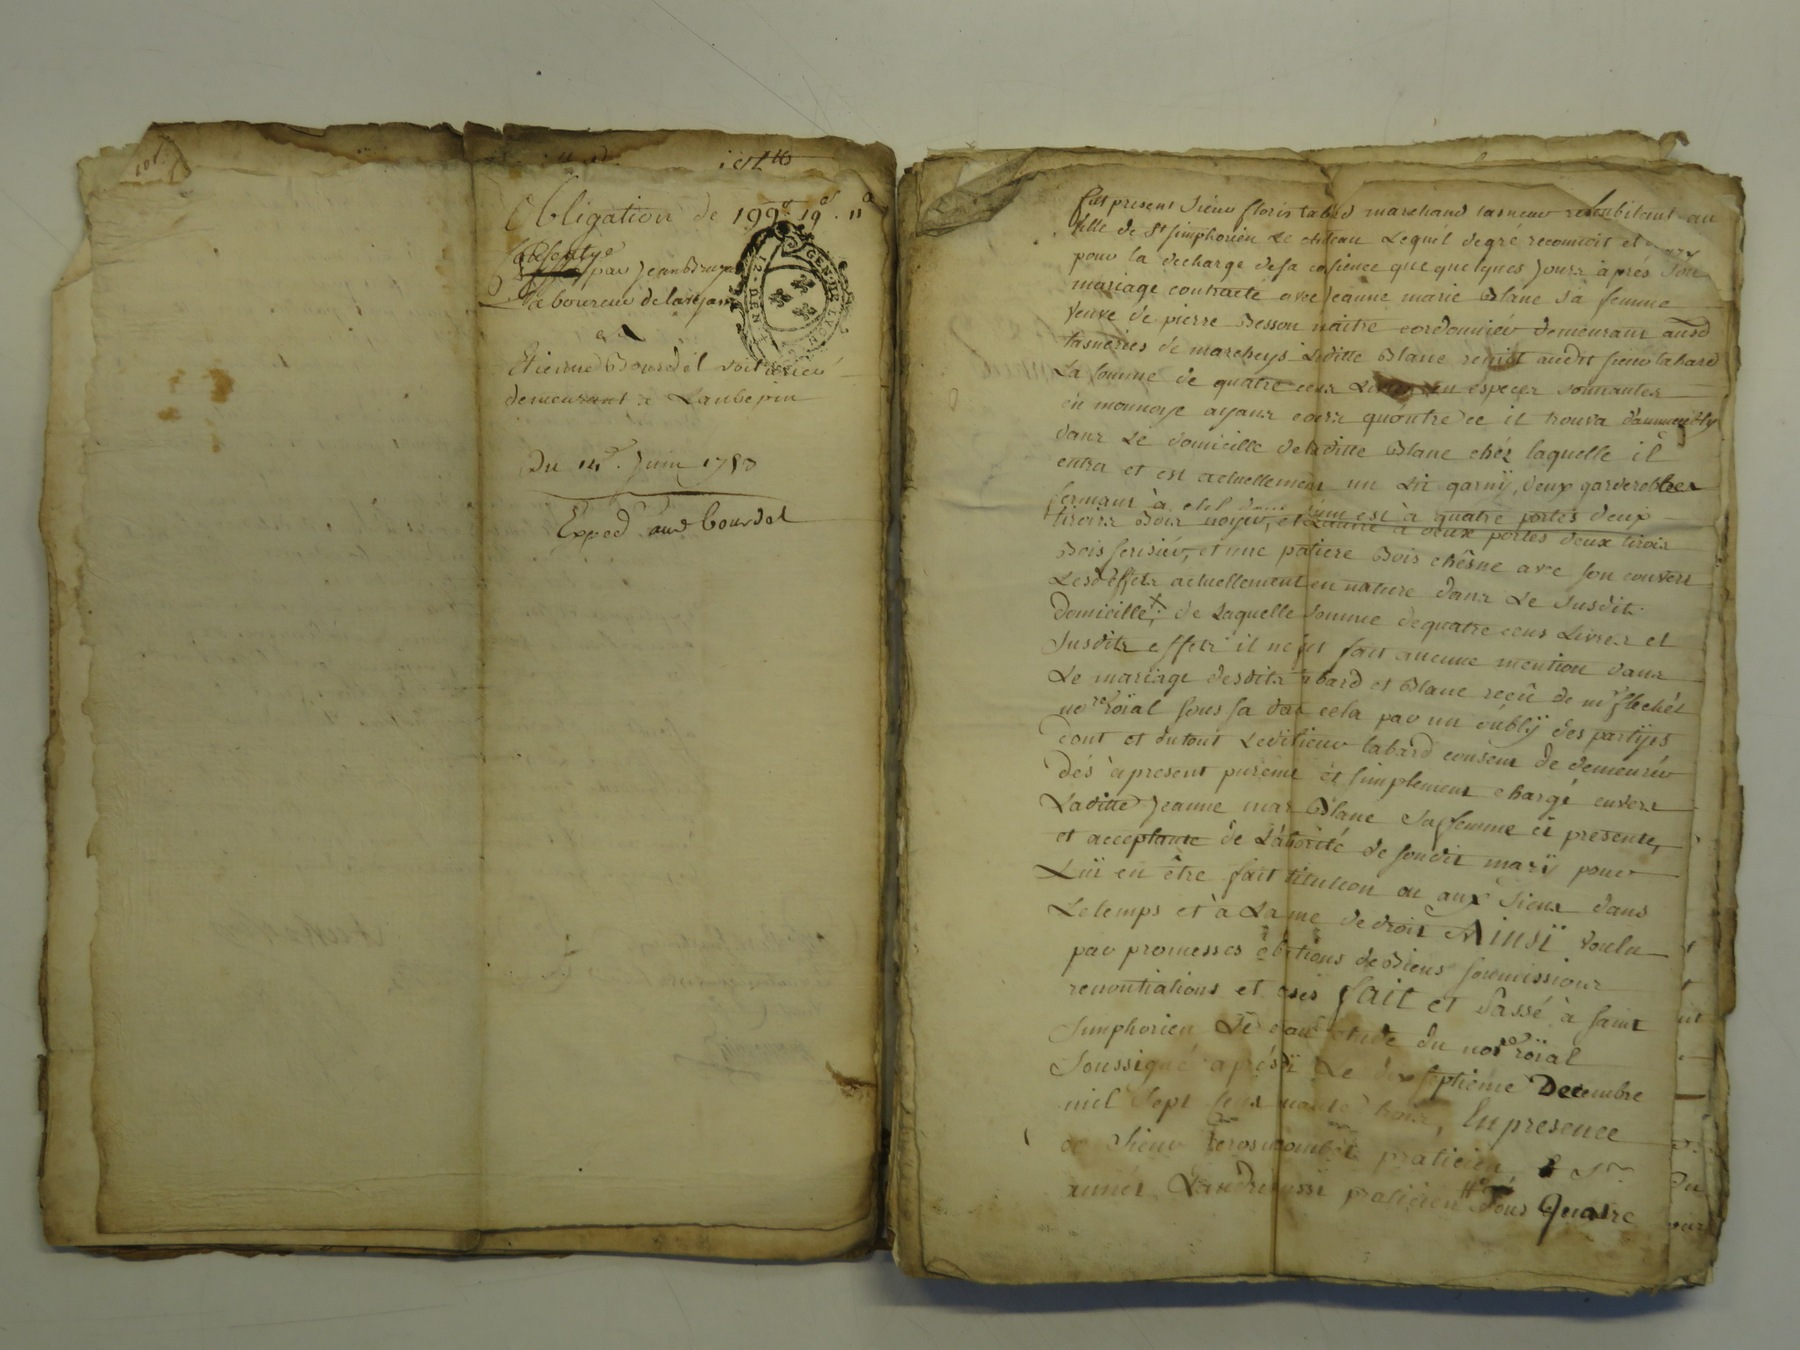 101
Obligation de 199# 19s 11d
par Jean
Laboureur de
et
Etienne Bourdel voiturier
demeurant a Laubepin
Du 14e. Juin 1783
Exped aud bourdel
GENER LYON
12 DEN
fut present sieur floris tabard marchand taneur rehabitant au
ville de St simphorien Le château Lequel de gré reconnoit et
pour la decharge de sa consience que quelques jours àprés son
mariage contracté avec jeanne marie Blanc sa femme
veuve de pierre Besson maitre cordonnier demeurant ausd
tasneries de Laditte Blanc remit audit sieur tabard
La somme de quatre cens Livres en especes sonnantes
en monnoye ayant cours quoutre ce il trouva
dans Le domicille de laditte Blanc chéz laquelle il
entra et est actuellement un Lit garnÿ, deux garderobbes
fermant à clef dont l'une est à quatre portes deux
tiroirs Bois noyer, et L'autre à deux portes deux tiroir
Bois serisier, et une patiere Bois chêsne avec son couvert
Lesd effets actuellement en nature dans Le susdit
domicille, de Laquelle somme de quatre cens Livres et
susdits effets il ne fut fait aucune mention dans
Le mariage desdits tabard et Blanc reçû de me flechét
nore roïal sous sa datte cela par un oublÿ des partÿes
dont et du tout Ledit sieur tabard consent de demeurér
dés àpresent purement et simplement chargé envers
Laditte jeanne marie Blanc sa femme ici presente,
et acceptante de L'autorité de sondit marÿ pour
Luï en être fait restitution ou aux siens dans
Le temps et à La forme de droit Ainsï voulu
par promesses obligations de Biens soumissions
renontiations et clauses fait et Passé à saint
simphorien Le château etude du nore roïal
soussigné aprés Le dix septiéme Decembre
mil sept cens trois, En presence
de sieur praticien & Sr
praticien tous Quatre